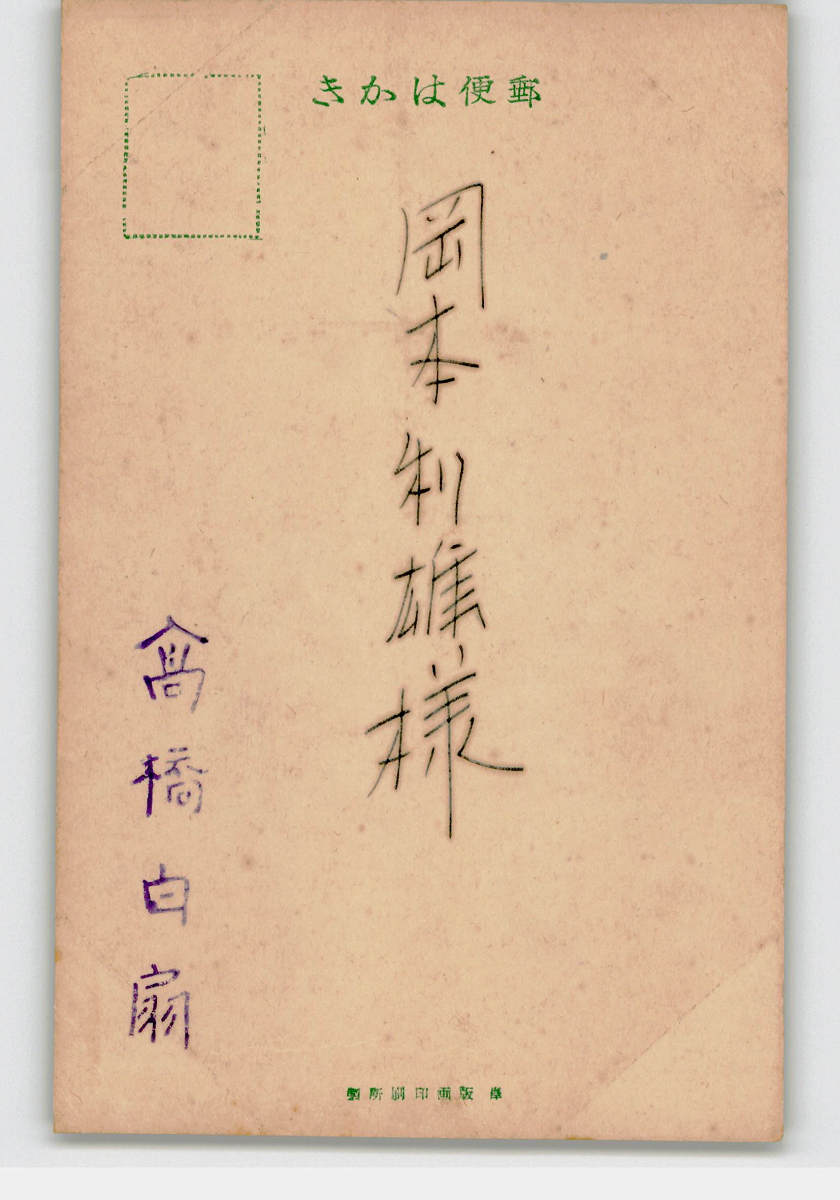 郵便はかき
岡本利雄様
髙橋白扇
版画印刷所製